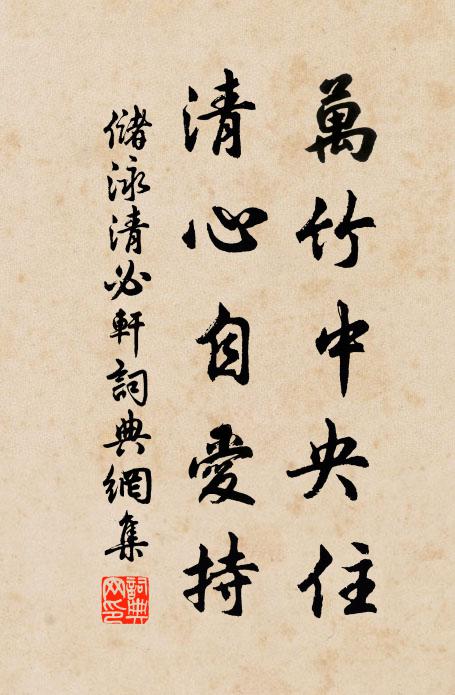 萬竹中央住
清心自愛持
儲泳清必軒詞典網集
詞典